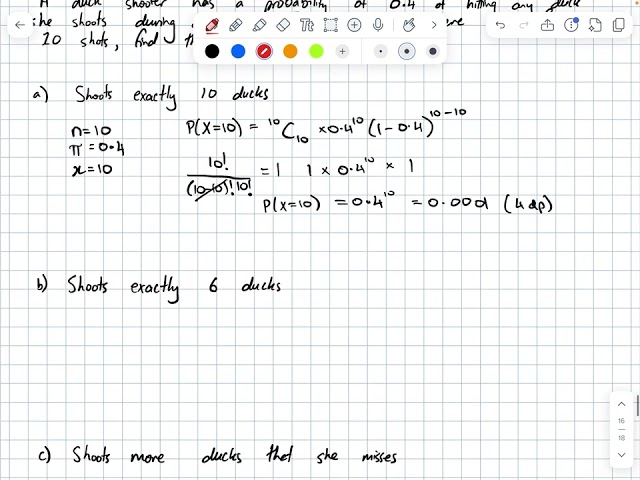 A duck shooter has a probability of 0.4 of hitting any duck
she shoots during
10 shots, find
a) Shoots exactly 10 ducks
n=10
π=0.4
x=10
P(X=10) = ¹⁰C₁₀ ×0.4¹⁰ (1-0.4)¹⁰⁻¹⁰
10!/(10-10)!10! = 1 1 × 0.4¹⁰ × 1
P(X=10) = 0.4¹⁰ = 0.0001 (4 dp)
b) Shoots exactly 6 ducks
c) Shoots more ducks that she misses
16
18